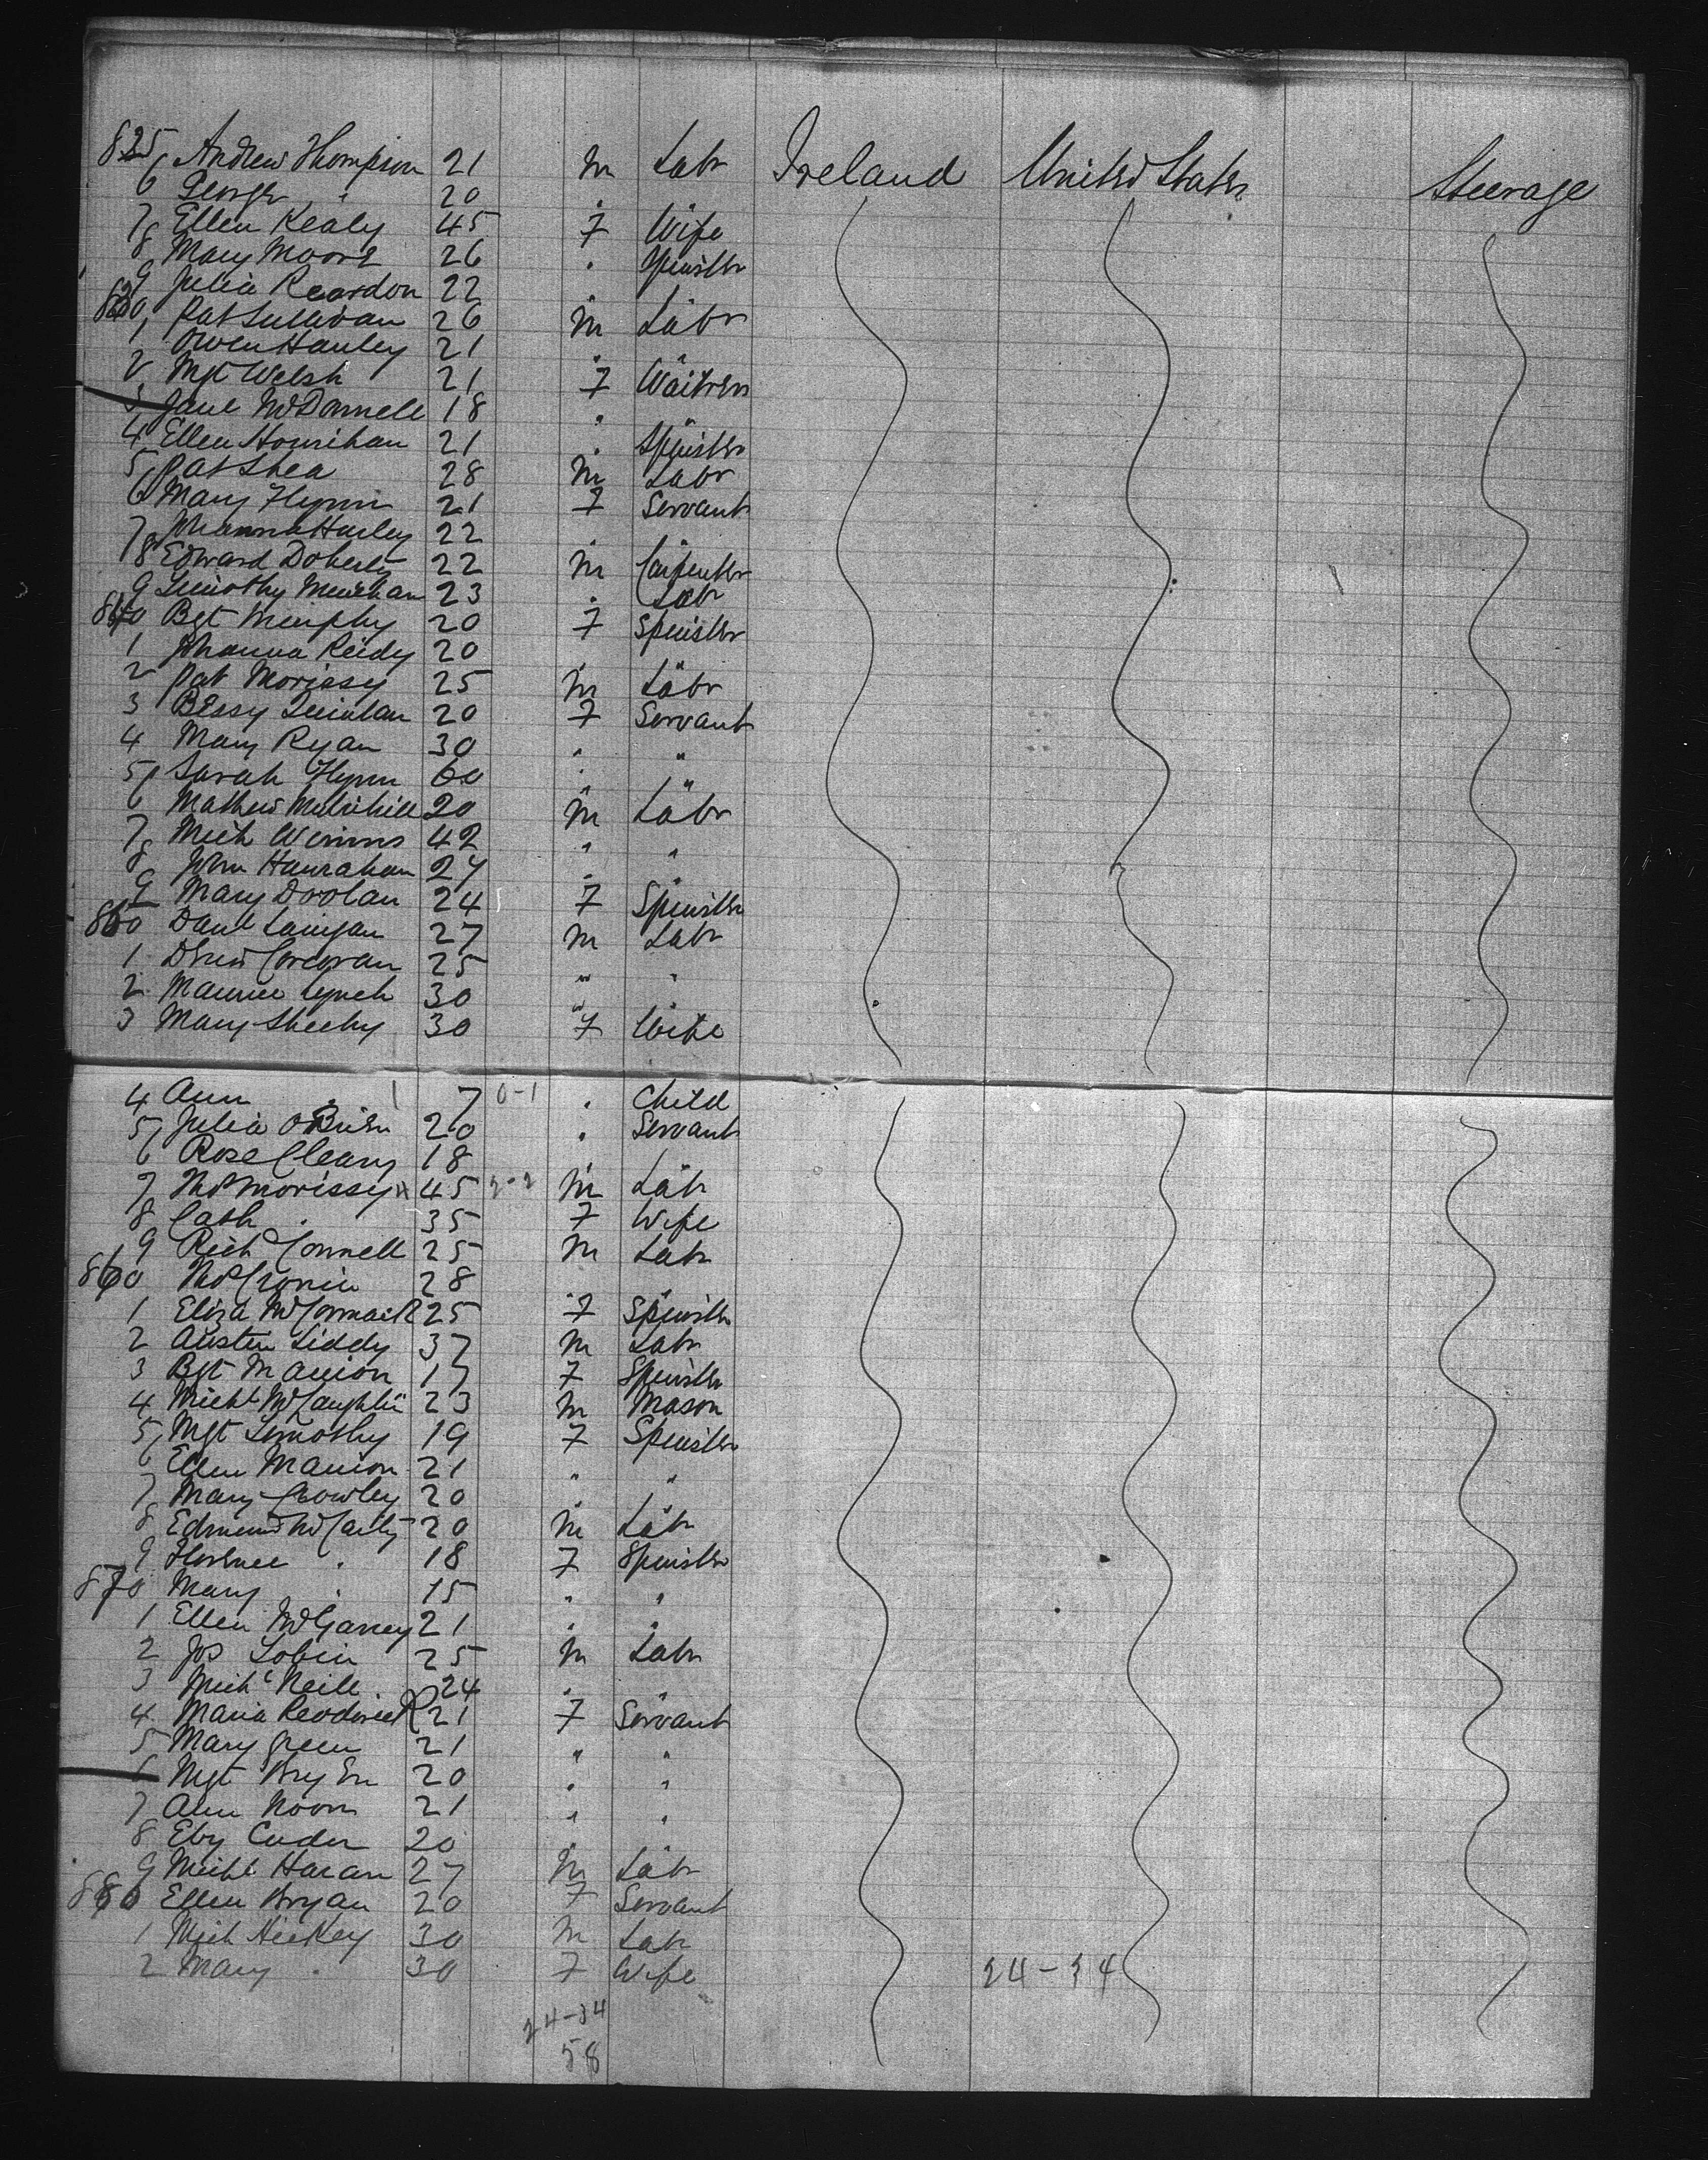 825 Andrew Thompson 21 m Labr Ireland United States Steerage
6 George " 20 "
7 Ellen Kealy 45 F Wife
8 Mary Moore 26 " Spinster
9 Julia Reardon 22 " "
830 Pat Sullivan 26 m Labr
1 Owen Hanley 21 " "
2 Mgt Welsh 21 F Waitress
3 Jane McDonnell 18 " "
4 Ellen Hourihan 21 " Spinster
5 Pat Shea 28 m Labr
6 Mary Flynn 21 F Servant
7 Johanna Hurley 22
8 Edward Doherty 22 m Carpenter
9 Timothy 23 " Labr
840 Bgt Murphy 20 F Spinster
1 Johanna Reidy 20 " "
2 Pat Morissy 25 m Labr
3 Bessy Quinlan 20 F Servant
4 Mary Ryan 30 " "
5 Sarah Flynn 60 " "
6 Mathew Mulvihill 20 m Labr
7 Mich 42 " "
8 John Hanrahan 27 " "
9 Mary Doolan 24 F Spinster
850 Danl Lanigan 27 m Labr
1 Corcoran 25 " "
2 Maurice Lynch 30 " "
3 Mary Sheehy 30 F Wife
4 Ann " 7 0-1 " Child
5 Julia OBrien 20 " Servant
6 Rose Cleary 18 " "
7 Thos Morissy x 45 2-2 m Labr
8 Cath " 35 F Wife
9 Rich Connell 25 m Labr
860 Thos Cronin 28 " "
1 Eliza McCormack 25 F Spinster
2 Austin Liddy 37 m Labr
3 Bgt Manion 17 F Spinster
4 Michl McLaughlin 23 m Mason
5 Mgt Timothy 19 F Spinster
6 Ellen Manion 21 " "
7 Mary Crowley 20 " "
8 Edmund McCarty 20 m Labr
9 Florence " 18 F Spinster
870 Mary " 15 " "
1 Ellen McGarvey 21 " "
2 Jos Tobin 25 m Labr
3 Mich Neill 24 " "
4 Maria 21 F Servant
5 Mary Green 21 " "
6 Mgt Bryen 20 " "
7 Ann Noon 21 " "
8 Eby 20 " "
9 Michl Haran 27 m Labr
880 Ellen Bryan 20 F Servant
1 Mich Hickey 30 m Labr
2 Mary " 30 F Wife 24-34
24-34
58